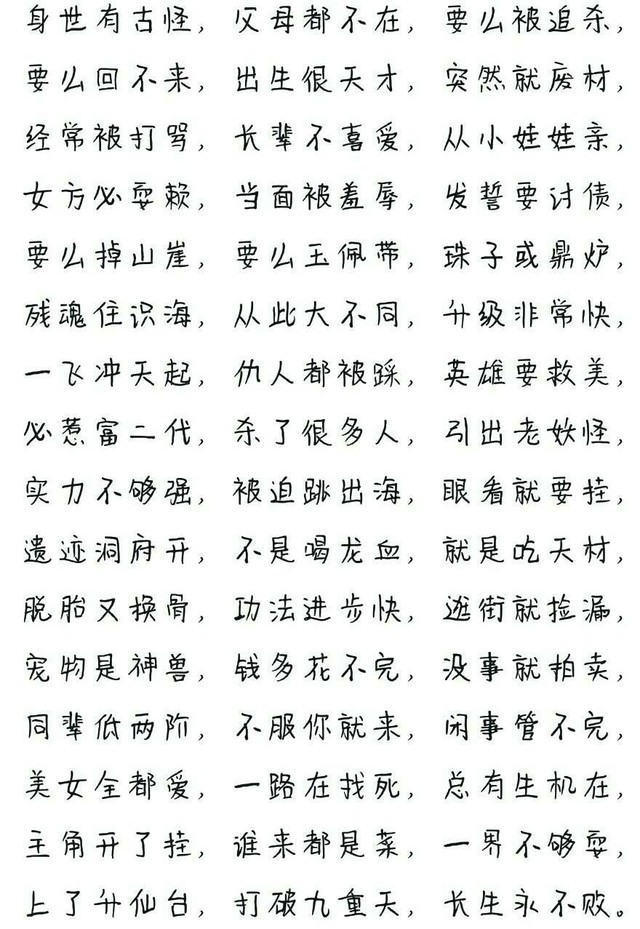 身世有古怪，父母都不在，要么被追杀，
要么回不来，出生很天才，突然就废材，
经常被打骂，长辈不喜爱，从小娃娃亲，
女方必耍赖，当面被羞辱，发誓要讨债，
要么掉山崖，要么玉佩带，珠子或鼎炉，
残魂住识海，从此大不同，升级非常快，
一飞冲天起，仇人都被踩，英雄要救美，
必惹富二代，杀了很多人，引出老妖怪，
实力不够强，被迫跳出海，眼看就要挂，
遗迹洞府开，不是喝龙血，就是吃天材，
脱胎又换骨，功法进步快，逛街就捡漏，
宠物是神兽，钱多花不完，没事就拍卖，
同辈低两阶，不服你就来，闲事管不完，
美女全都爱，一路在找死，总有生机在，
主角开了挂，谁来都是菜，一界不够耍，
上了升仙台，打破九重天，长生永不败。